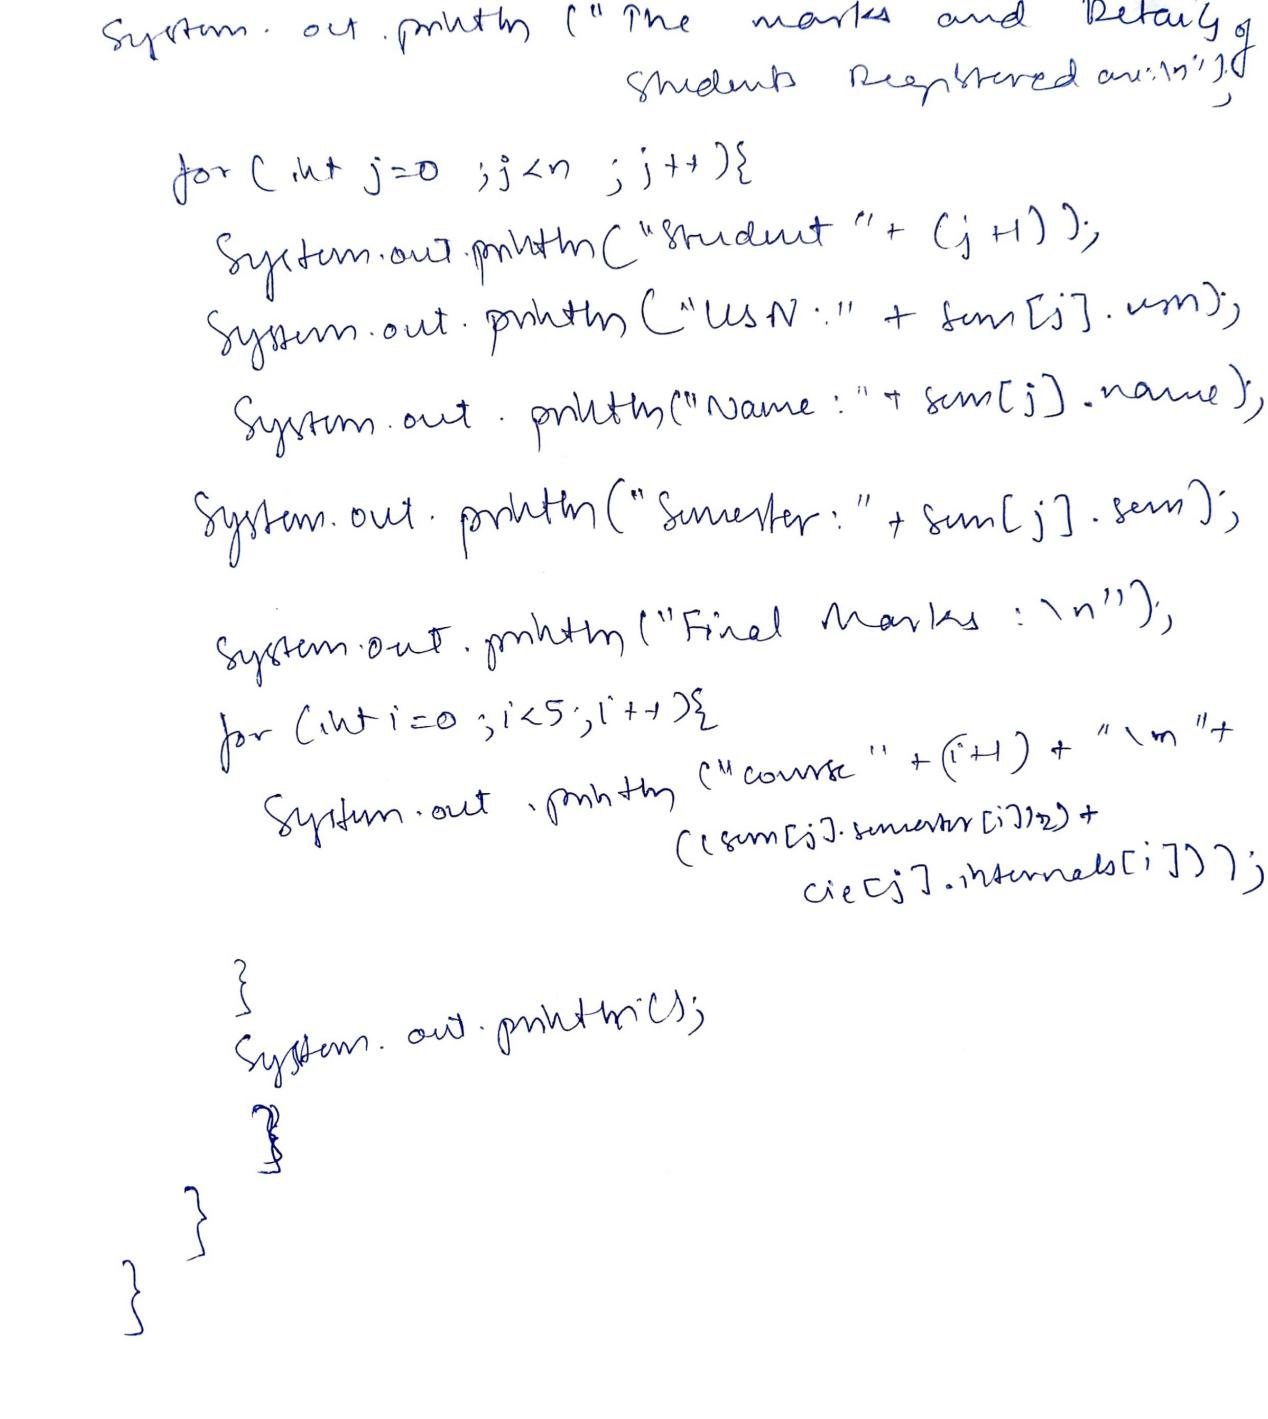 System.out.println ("The marks and Details of
Students Registered are:\n");
for (int j=0 ;j<n ; j++){
System.out.println("Student "+ (j+1));
System.out.println ("USN :" + sem[j].usn);
System.out.println("Name :"+ sem[j].name);
System.out.println("Semester:"+ sem[j].sem);
System.out.println ("Final Marks : \n");
for (int i=0 ;i<5;i++){
System.out.println ("course "+(i+1) + "\n "+
((sem[j].semester[i])/2) +
cie[j].internals[i]));
}
System.out.println();
}
}
}